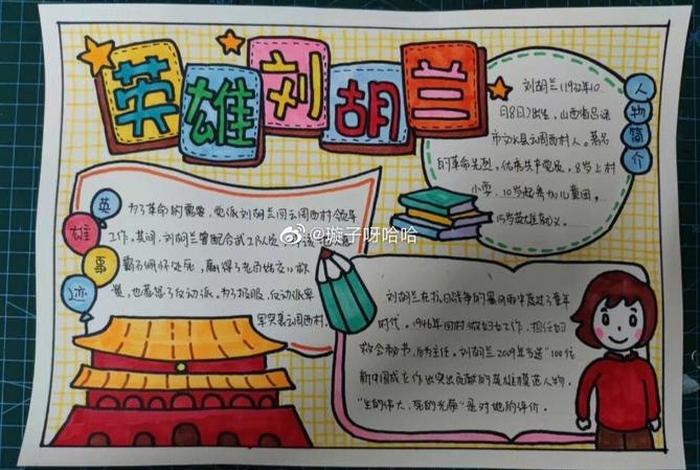 英雄刘胡兰
人物简介
刘胡兰(1932年10
月8日)出生,山西省吕梁
市文水县云周西村人。著名
的革命先烈,优秀共产党员,8岁上村
小学,10岁起参加儿童团。
15岁英雄就义。
英雄事迹
为了革命的需要,党派刘胡兰回云周西村领导
工作。其间,刘胡兰曾配合武工队
霸石佩怀处死,
也惹怒了反动派。为了报服,反动派军
军突袭云周西村。
@璇子呀哈哈
刘胡兰在抗日战争的暴风雨中度过了童年
时代。1946年回村做妇女工作,担任妇
救会秘书,后为主任。刘胡兰2009年当选"100位
新中国成立作出突出贡献的英雄模范人物。
"生的伟大,死的光荣"是对她的评价。